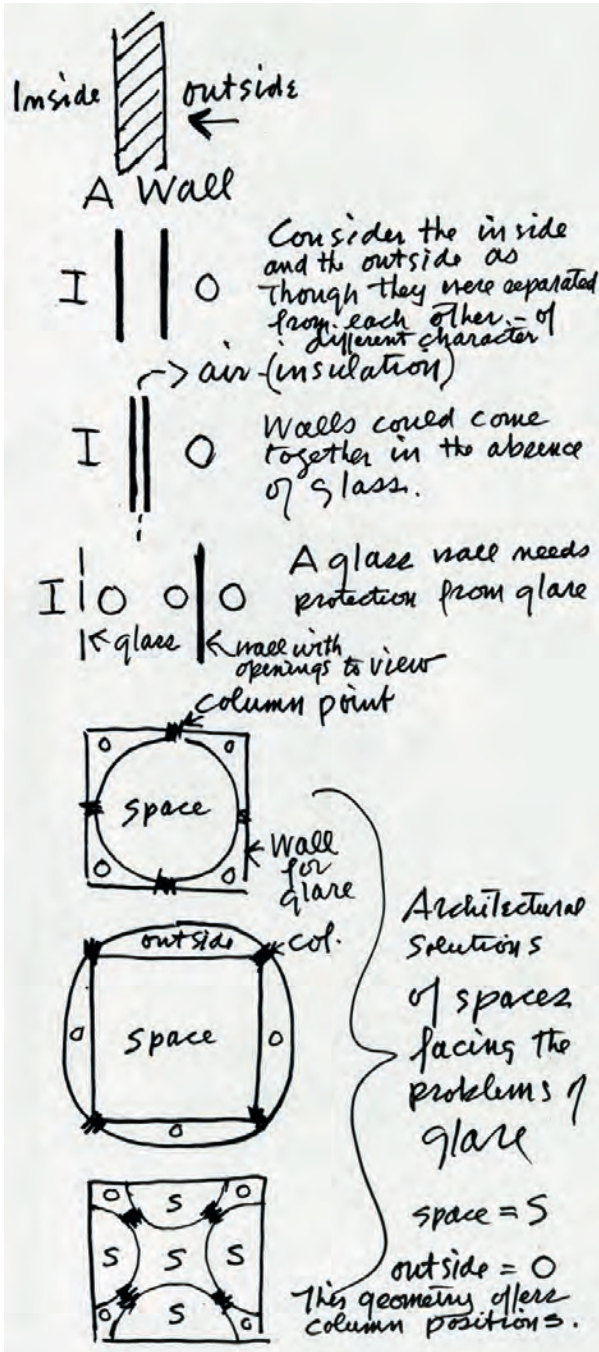 Inside
outside
A Wall
I
O
Consider the inside
and the outside as
Though they were separated
from each other - of
different character
air-(insulation)
I
O
Walls could come
together in the absence
of glass.
I
O
O
O
A glass wall needs
protection from glare
glass
wall with
openings to view
column point
O
O
space
O
O
Wall
for
glare
outside
col.
O
space
O
O
Architectural
solutions
of spaces
facing the
problems of
glare
O
S
O
S
S
S
O
S
O
space = S
outside = O
This geometry offers
column positions.